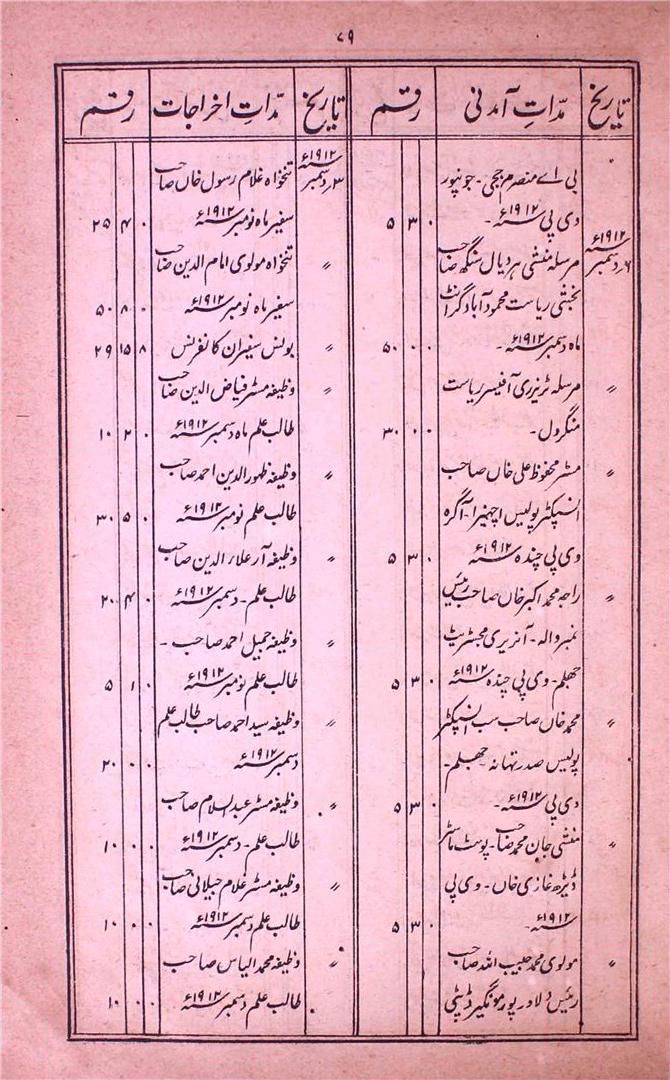 ۷۹
تاریخ مدّاتِ آمدنی رقم
بی اے منصرم ججی۔ جونپور
وی پی ۱۹۱۲ء۔ ۰ ۳ ۵
۶ دسمبر ۱۹۱۲ء مرسلہ منشی ہردیال سنگھ صاحب
بخشی ریاست محمود آباد گرانٹ
ماہ دسمبر ۱۹۱۲ء۔ ۰ ۰ ۵۰
〃 مرسلہ ٹریزری آفیسر ریاست
منگرول۔ ۰ ۰ ۳۰
〃 مسٹر محفوظ علی خاں صاحب
انسپکٹر پولیس اچھنیرا۔ آگرہ
وی پی چندہ ۱۹۱۲ء ۰ ۳ ۵
〃 راجہ محمد اکبر خاں صاحب رئیس
نمبر والہ۔ آنریری مجسٹریٹ
جھلم۔ وی پی چندہ ۱۹۱۲ء ۰ ۳ ۵
〃 محمد خاں صاحب سب انسپکٹر
پولیس صدر تھانہ۔ جھلم۔
وی پی ۱۹۱۲ء۔ ۰ ۳ ۵
〃 منشی جان محمد صاحب۔ پوسٹ ماسٹر
ڈیڑھ غازی خاں۔ وی پی
۱۹۱۲ء۔ ۰ ۳ ۵
〃 مولوی محمد حبیب اللہ صاحب
رئیس دلاور پور مونگیر ڈپٹی
تاریخ مدّاتِ اخراجات رقم
۳ دسمبر ۱۹۱۲ء تنخواہ غلام رسول خاں صاحب
سفیر ماہ نومبر ۱۹۱۲ء ۰ ۴ ۲۵
〃 تنخواہ مولوی امام الدین صاحب
سفیر ماہ نومبر ۱۹۱۲ء ۰ ۸ ۵۰
〃 بونس سفیران کانفرنس ۸ ۱۵ ۲۹
〃 وظیفہ مسٹر فیاض الدین صاحب
طالب علم ماہ دسمبر ۱۹۱۲ء ۰ ۲ ۱۰
〃 وظیفہ ظہور الدین احمد صاحب
طالب علم نومبر ۱۹۱۲ء ۰ ۵ ۳۰
〃 وظیفہ آر علاء الدین صاحب
طالب علم۔ دسمبر ۱۹۱۲ء ۰ ۴ ۲۰
〃 وظیفہ جمیل احمد صاحب۔
طالب علم نومبر ۱۹۱۲ء ۰ ۱ ۵
〃 وظیفہ سید احمد صاحب طالب علم
دسمبر ۱۹۱۲ء ۰ ۰ ۲۰
〃 وظیفہ مسٹر عبد السلام صاحب
طالب علم۔ دسمبر ۱۹۱۲ء ۰ ۰ ۱۰
〃 وظیفہ مسٹر غلام جیلانی صاحب
طالب علم دسمبر ۱۹۱۲ء ۰ ۰ ۱۰
〃 وظیفہ محمد الیاس صاحب
طالب علم دسمبر ۱۹۱۲ء ۰ ۰ ۱۰